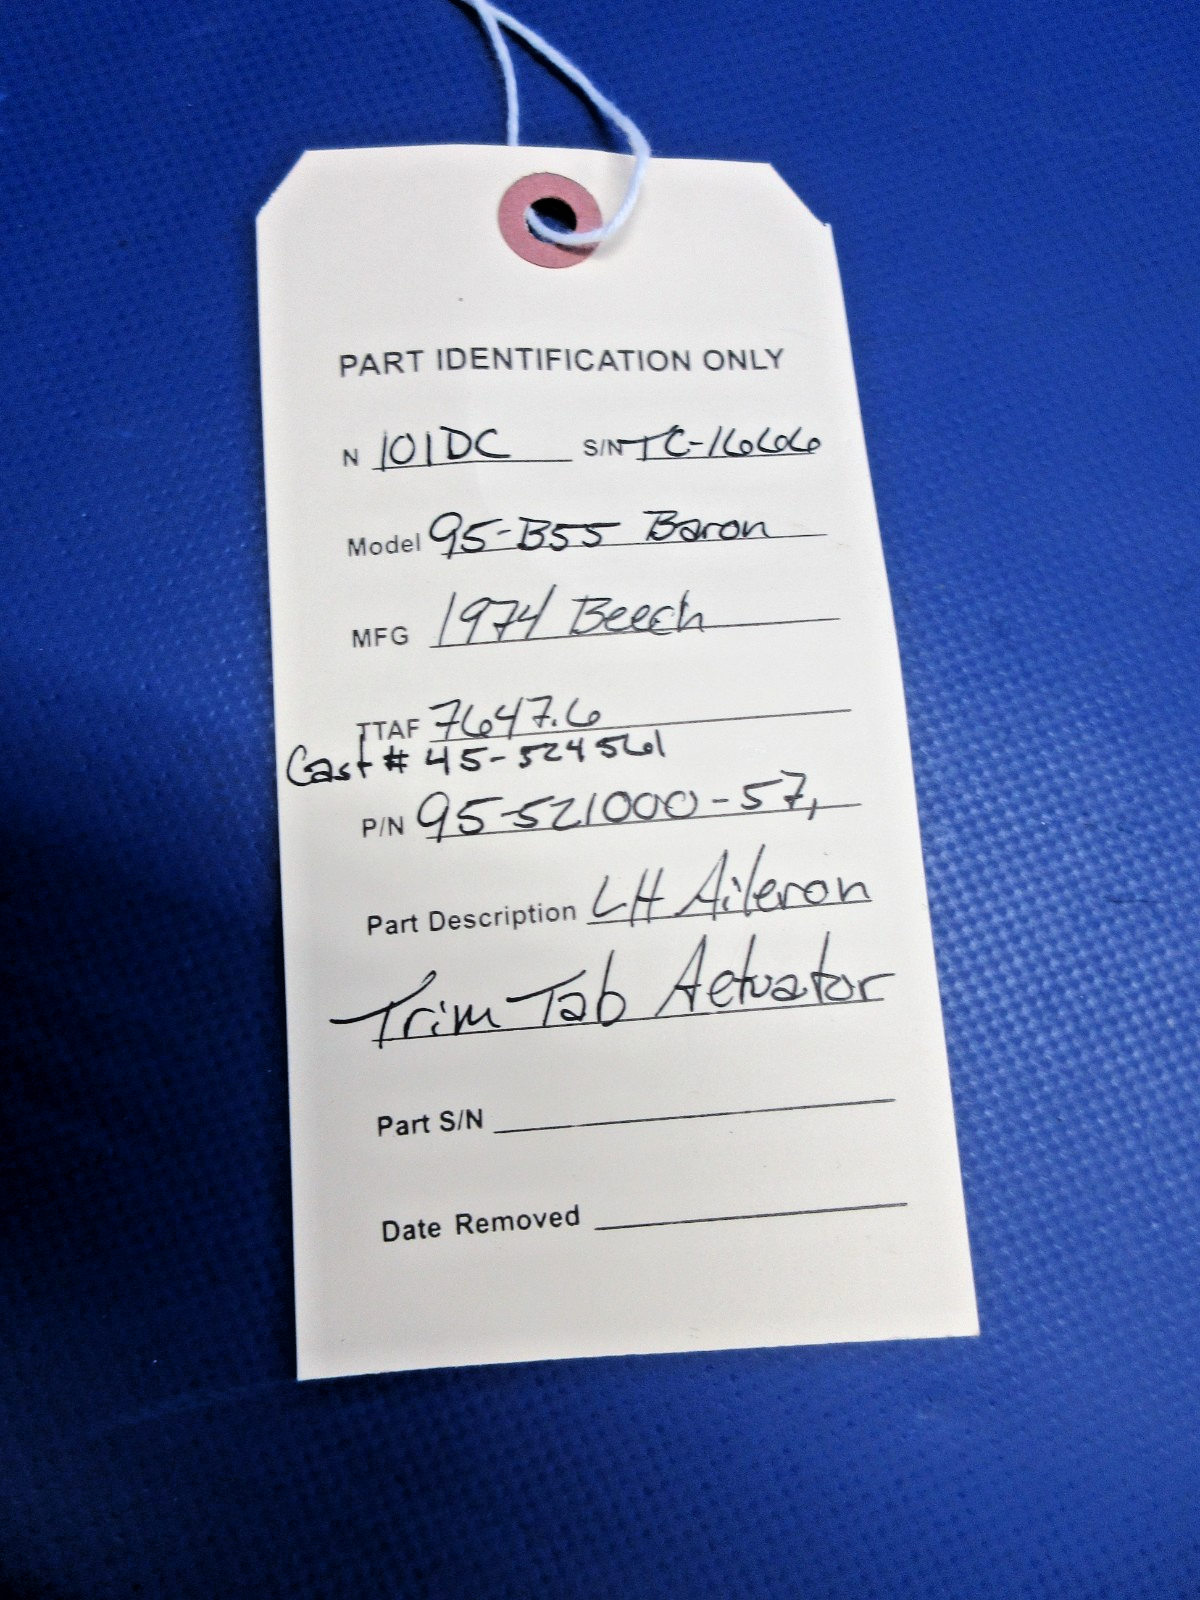 PART IDENTIFICATION ONLY
N 101DC S/N TC-1666
Model 95-B55 Baron
MFG 1974 Beech
TTAF 7647.6
Cast # 45-524561
P/N 95-521000-57,
Part Description LH Aileron
Trim Tab Actuator
Part S/N
Date Removed